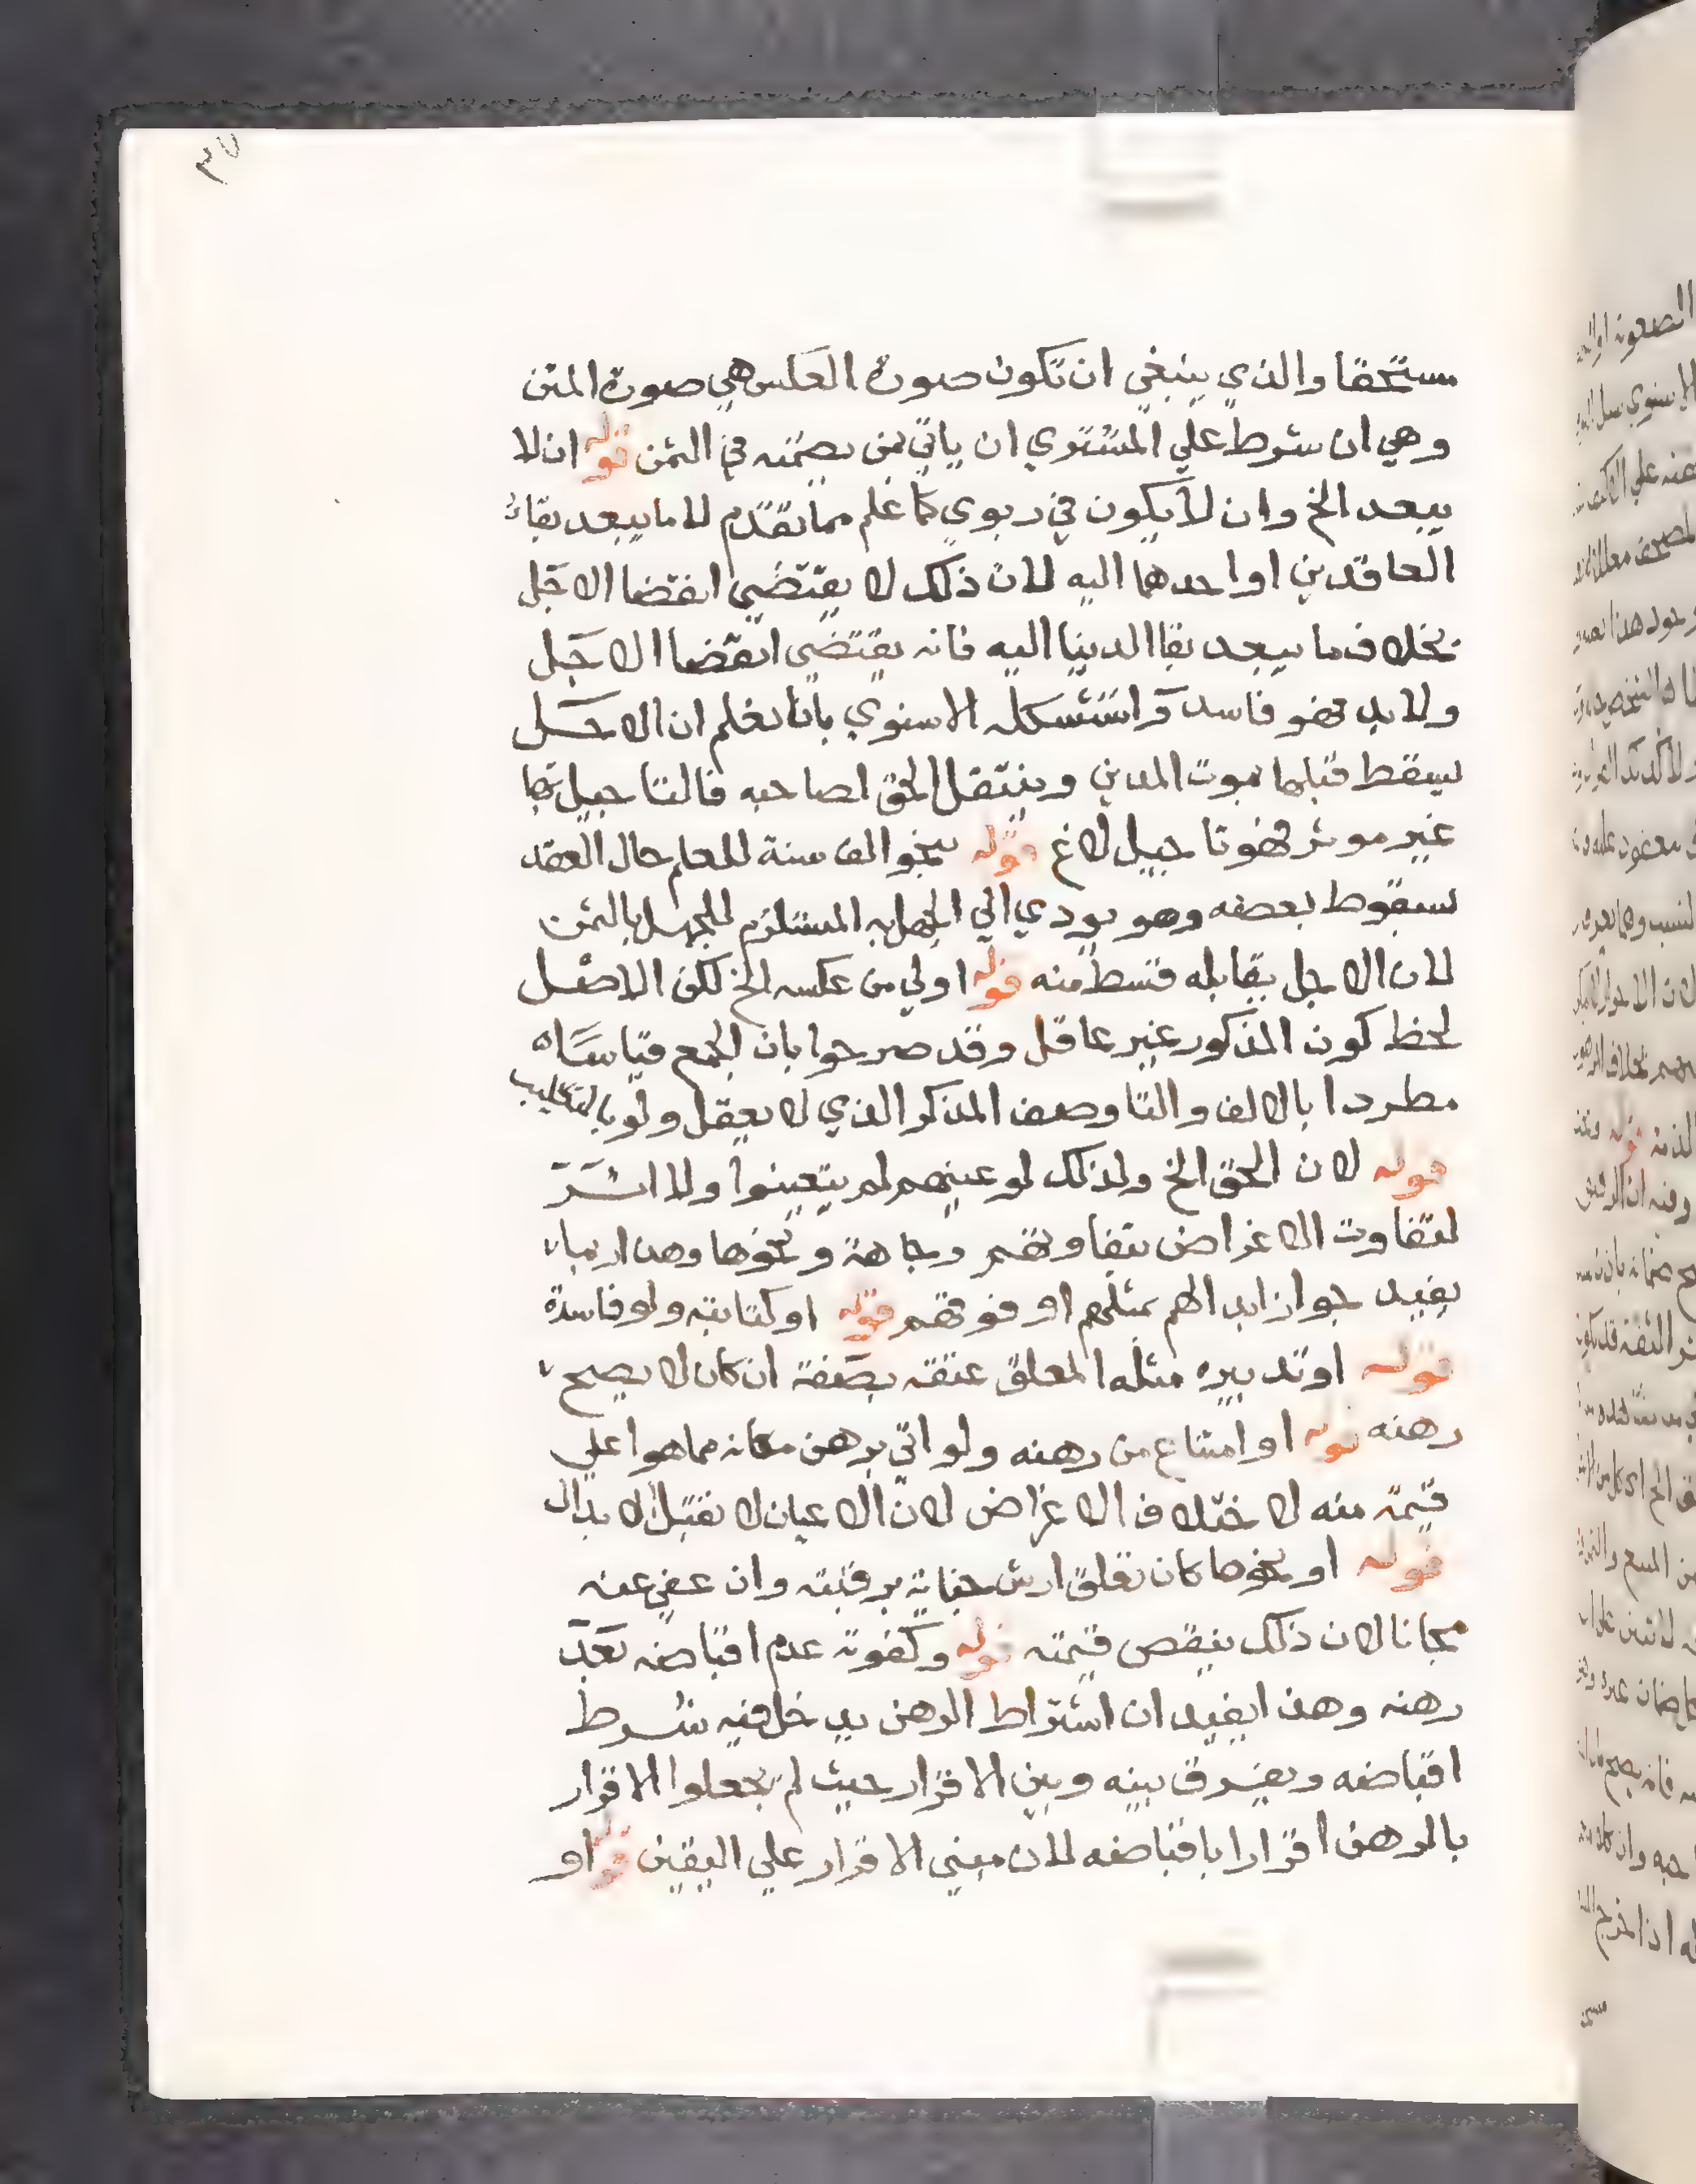 ٣٧
مستحقا والذي ينبغي ان تكون صورة العكس هي صورة المتن
وهي ان شرط علي المشتري ان ياتي بمن يضمنه في الثمن قوله ان لا
يبعد الخ وان لا يكون في ربوي كما علم مما تقدم لا ما يبعد بقاء
العاقدين او احدهما اليه لان ذلك لا يقتضي انقضا الاجل
بخلاف ما يبعد بقا الدنيا اليه فانه يقتضي انقضا الاجل
ولا بد فهو فاسد واستشكله الاسنوي بانا نعلم ان الاجل
يسقط قبلها بموت المدين وينتقل الحق لصاحبه فالتاجيل بها
غير موثر فهو تاجيل لاغ قوله بنحو الف سنة للعلم حال العقد
بسقوط بعضه وهو يودي الي الجهل به المستلزم للجهل بالثمن
لان الاجل يقابله قسط منه قوله اولي من عكسه الخ لكن الاصل
لحظ كون المذكور غير عاقل وقد صرحوا بان الجمع قياسا
مطردا بالالف والتا وصف المذكر الذي لا يعقل ولو بالتغليب
قوله لان الحق الخ ولذلك لو عينهم لم يتعينوا ولا اثر
لتفاوت الاغراض بتفاوتهم وجاهة ونحوها وهذا ربما
يفيد جواز ابدالهم بمثلهم او فوقهم قوله او كتابته ولو فاسدة
قوله او تدبيره مثله المعلق عتقه بصفة ان كان لا يصح
رهنه قوله او امتناع من رهنه ولو اتي برهن مكانه مما هو اعلي
قيمة منه لاختلاف الاغراض لان الاعيان لا تقبل الابدال
قوله او نحوها كان تعلق ارش جناية برقبته وان عفي عنه
مجانا لان ذلك ينقص قيمته قوله وكفوته عدم اقباضه بعد
رهنه وهذا يفيد ان اشتراط الرهن يدخل فيه شرط
اقباضه ويفرق بينه وبين الاقرار حيث لم يجعلوا الاقرار
بالرهن اقرارا باقباضه لان مبني الاقرار علي اليقين قوله او